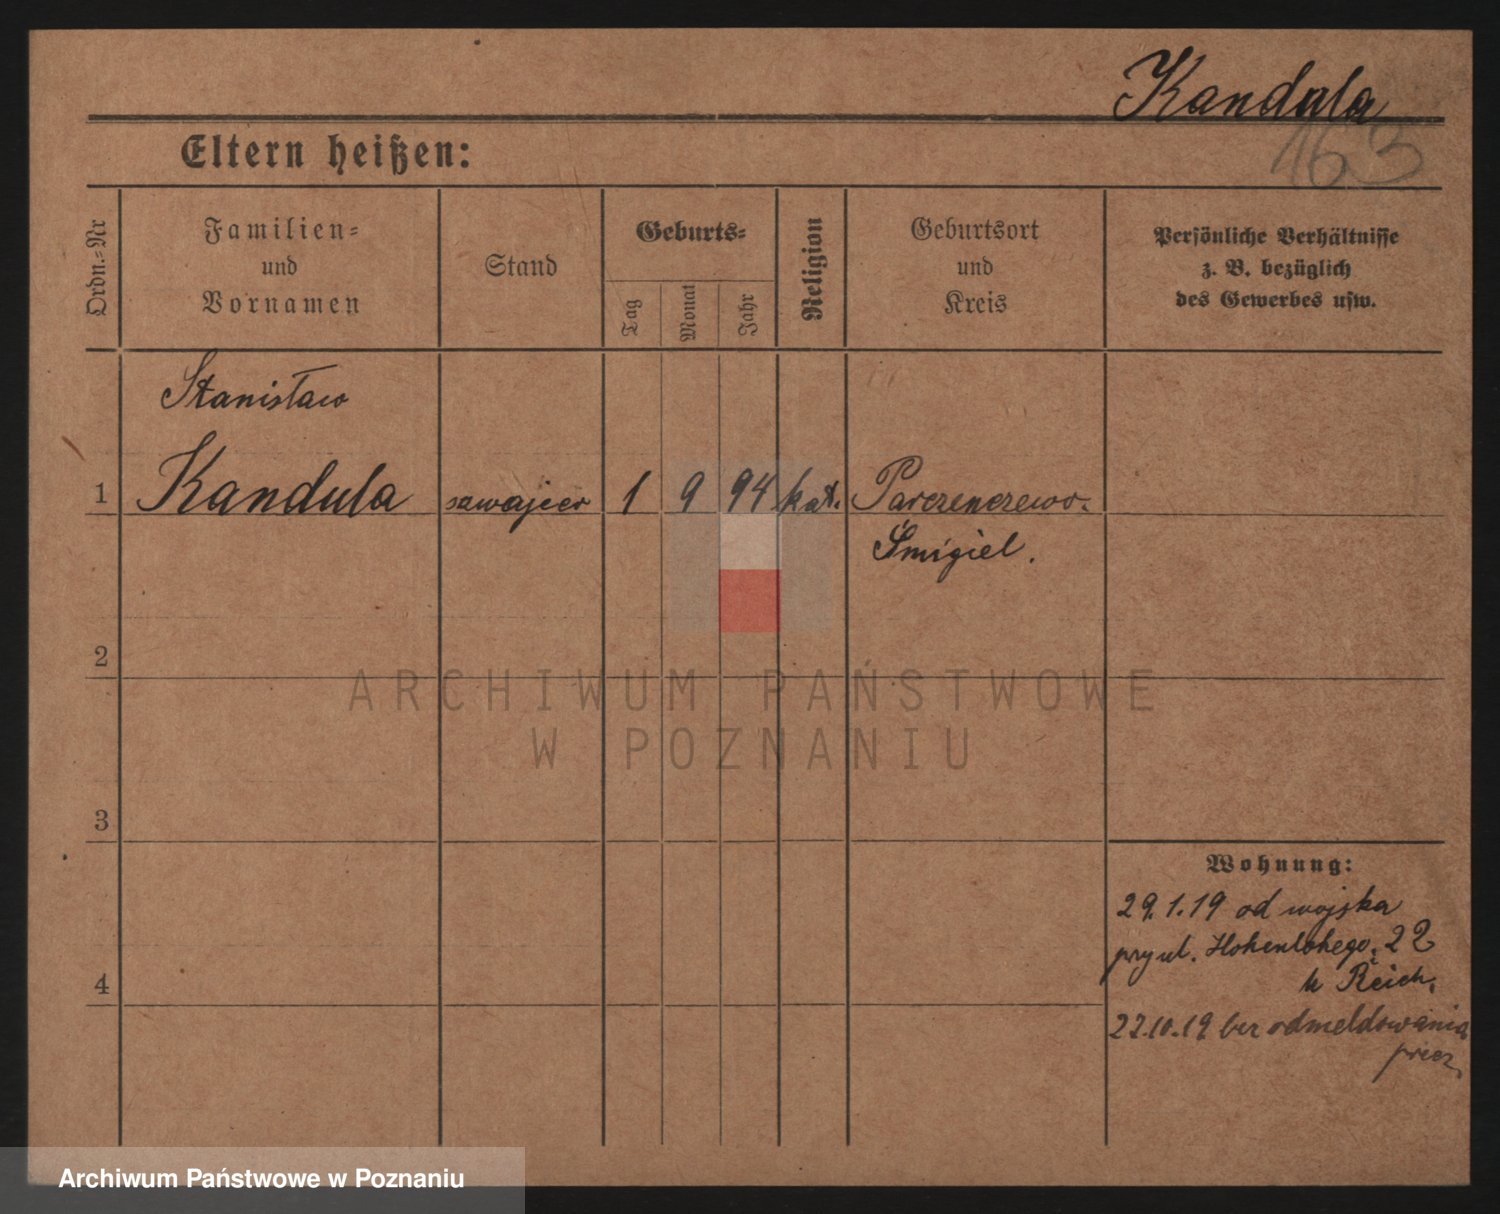 Kandula
163
Eltern heißen:
Ordn.-Nr
Familien-
und
Vornamen
Stand
Geburts-
Tag
Monat
Jahr
Religion
Geburtsort
und
Kreis
Persönliche Verhältnisse
z. B. bezüglich
des Gewerbes usw.
Stanisław
1 Kandula szwajcer 1 9 94 kat. Parczenczewo-
Śmigiel.
2
3
4
Wohnung:
29.1.19 od wojska
przy ul. Hohenlohego, 22
u Reich.
22.10.19 bez odmeldowania
precz.
ARCHIWUM PAŃSTWOWE
W POZNANIU
Archiwum Państwowe w Poznaniu